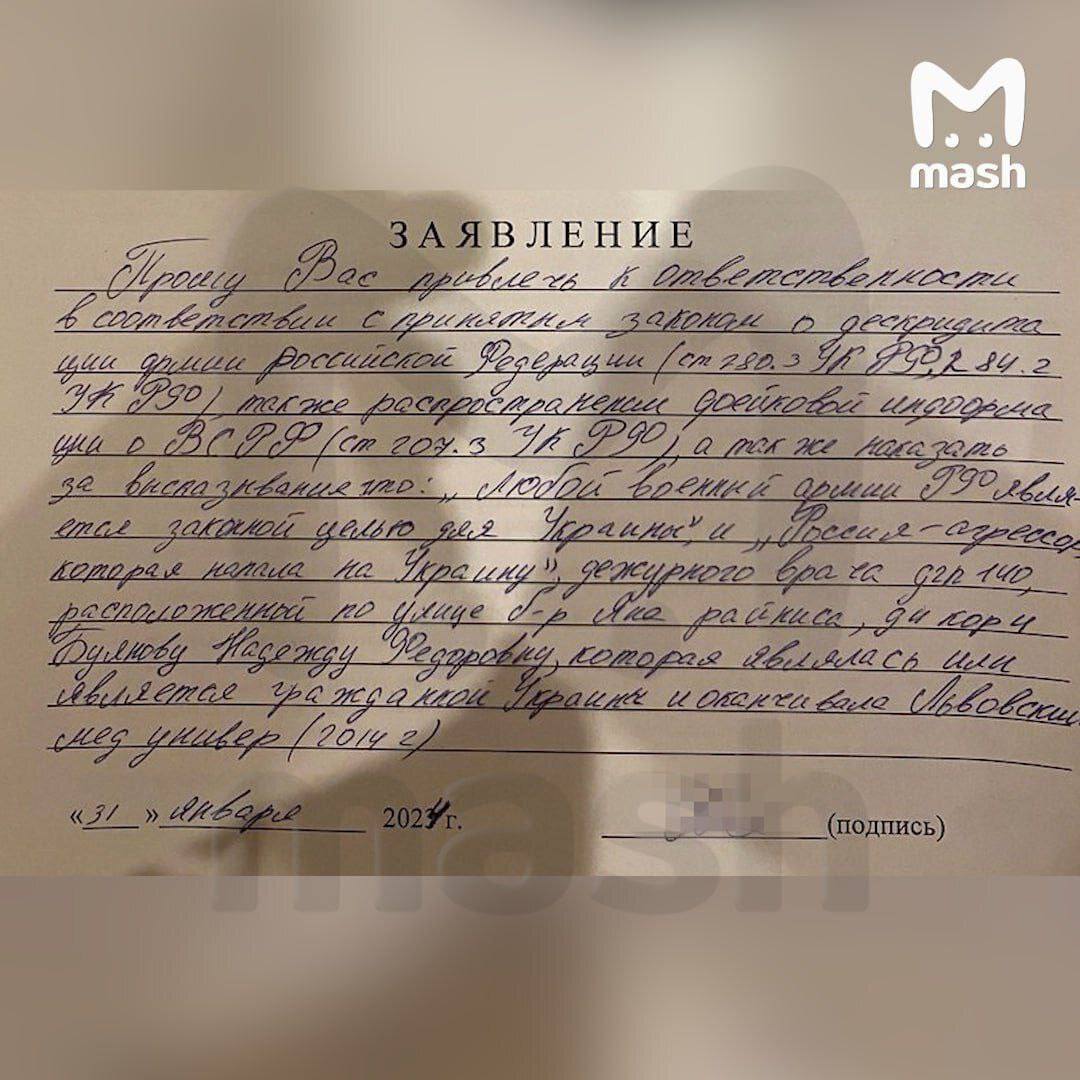 mash
ЗАЯВЛЕНИЕ
Прошу Вас привлечь к ответственности
в соответствии с принятым законом о дескридита
ции армии Российской Федерации (ст 280.3 УК РФ, 284.2
УК РФ), также распространении фейковой информа
ции о ВС РФ (ст 207.3 УК РФ), а так же наказать
за высказывание что: „Любой военный армии РФ явля-
ется законной целью для Украины" и „Россия - агрессор
которая напала на Украину", дежурного врача дгп 140,
расположенной по улице б-р Яна райниса,
Буянову Надежду Федоровну, которая являлась или
является гражданкой Украины и оканчивала Львовский
мед универ (2014 г)
«31» января 2024 г. (подпись)
mash